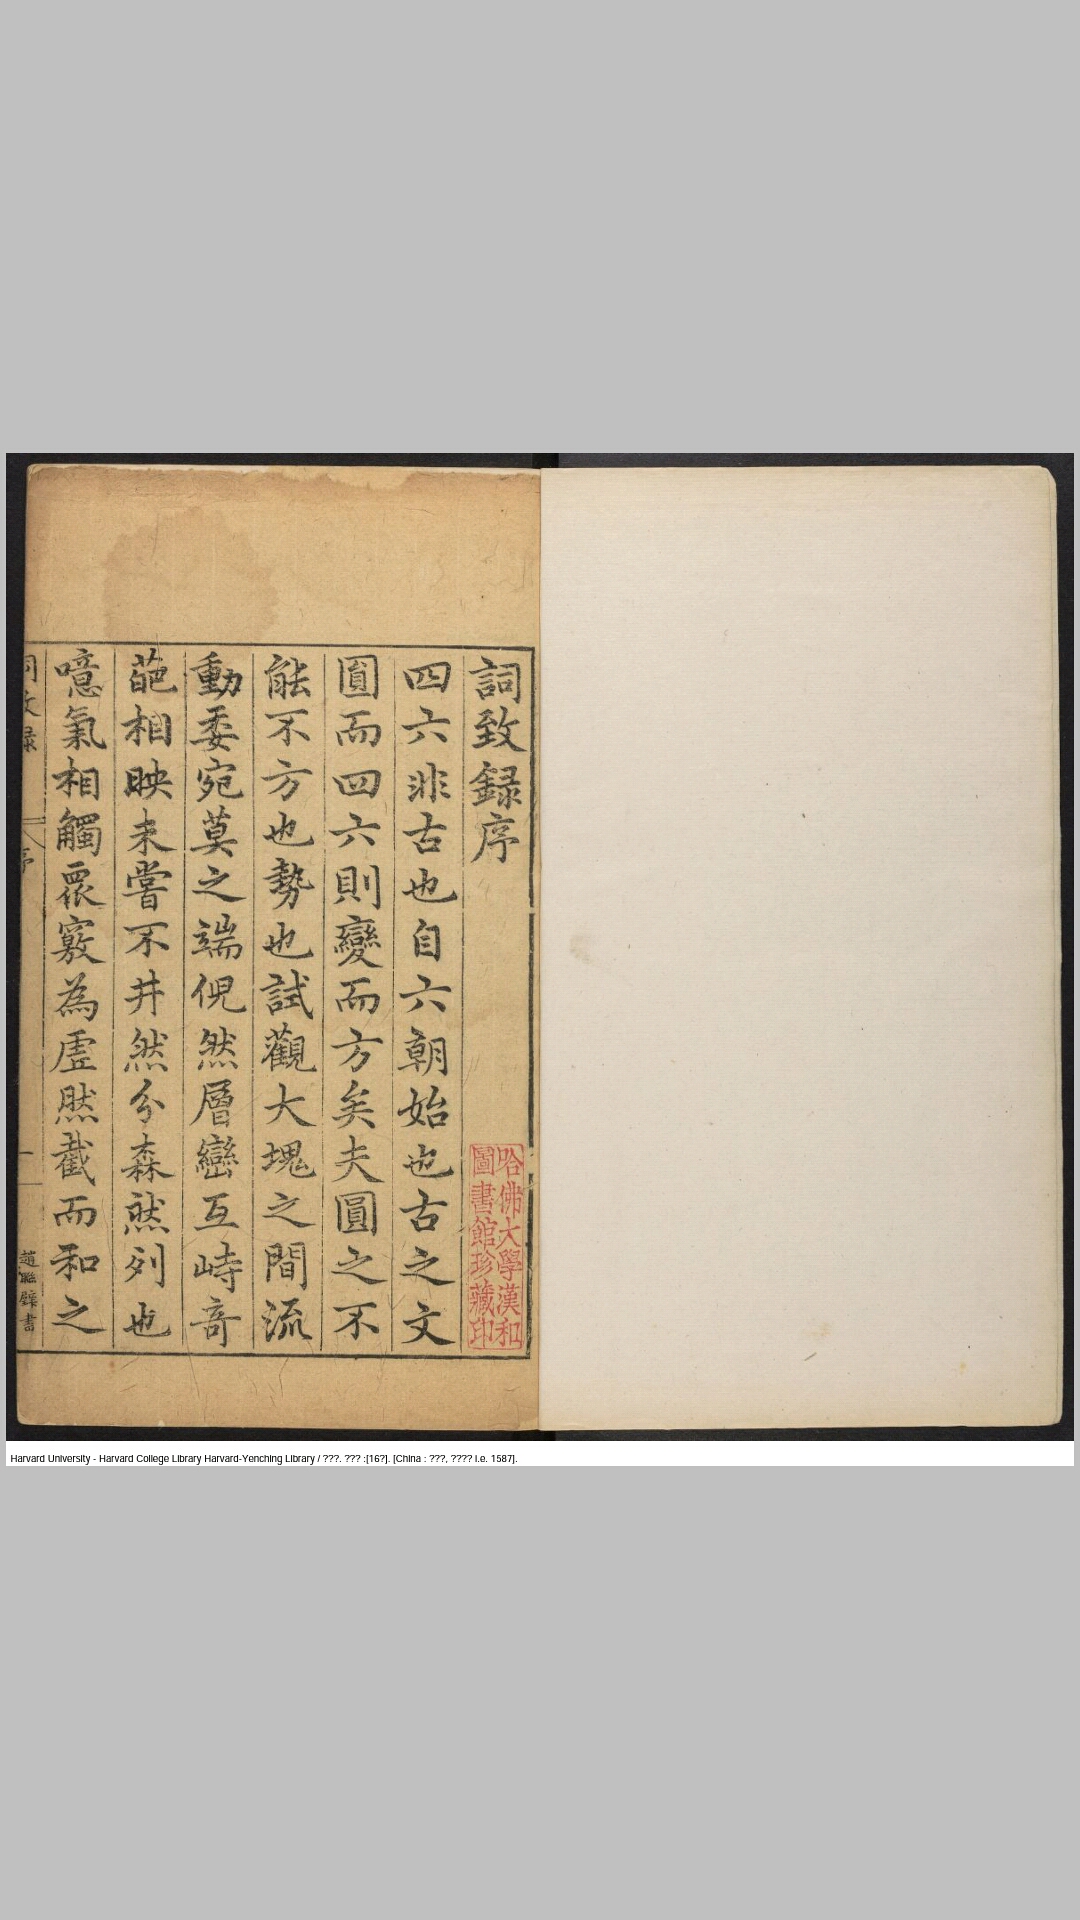 詞致録序
四六非古也自六朝始也古之文
圓而四六則變而方矣夫圓之不
能不方也勢也試觀大塊之間流
動委宛莫之端倪然層巒互峙竒
葩相映未嘗不井然分森然列也
噫氣相觸衆竅為虛然截而和之
詞致録
序
一
趙應驛書
哈佛大學漢和
圖書館珍藏印
Harvard University - Harvard College Library Harvard-Yenching Library / ???. ??? :[16?]. [China : ???, ???? i.e. 1587].